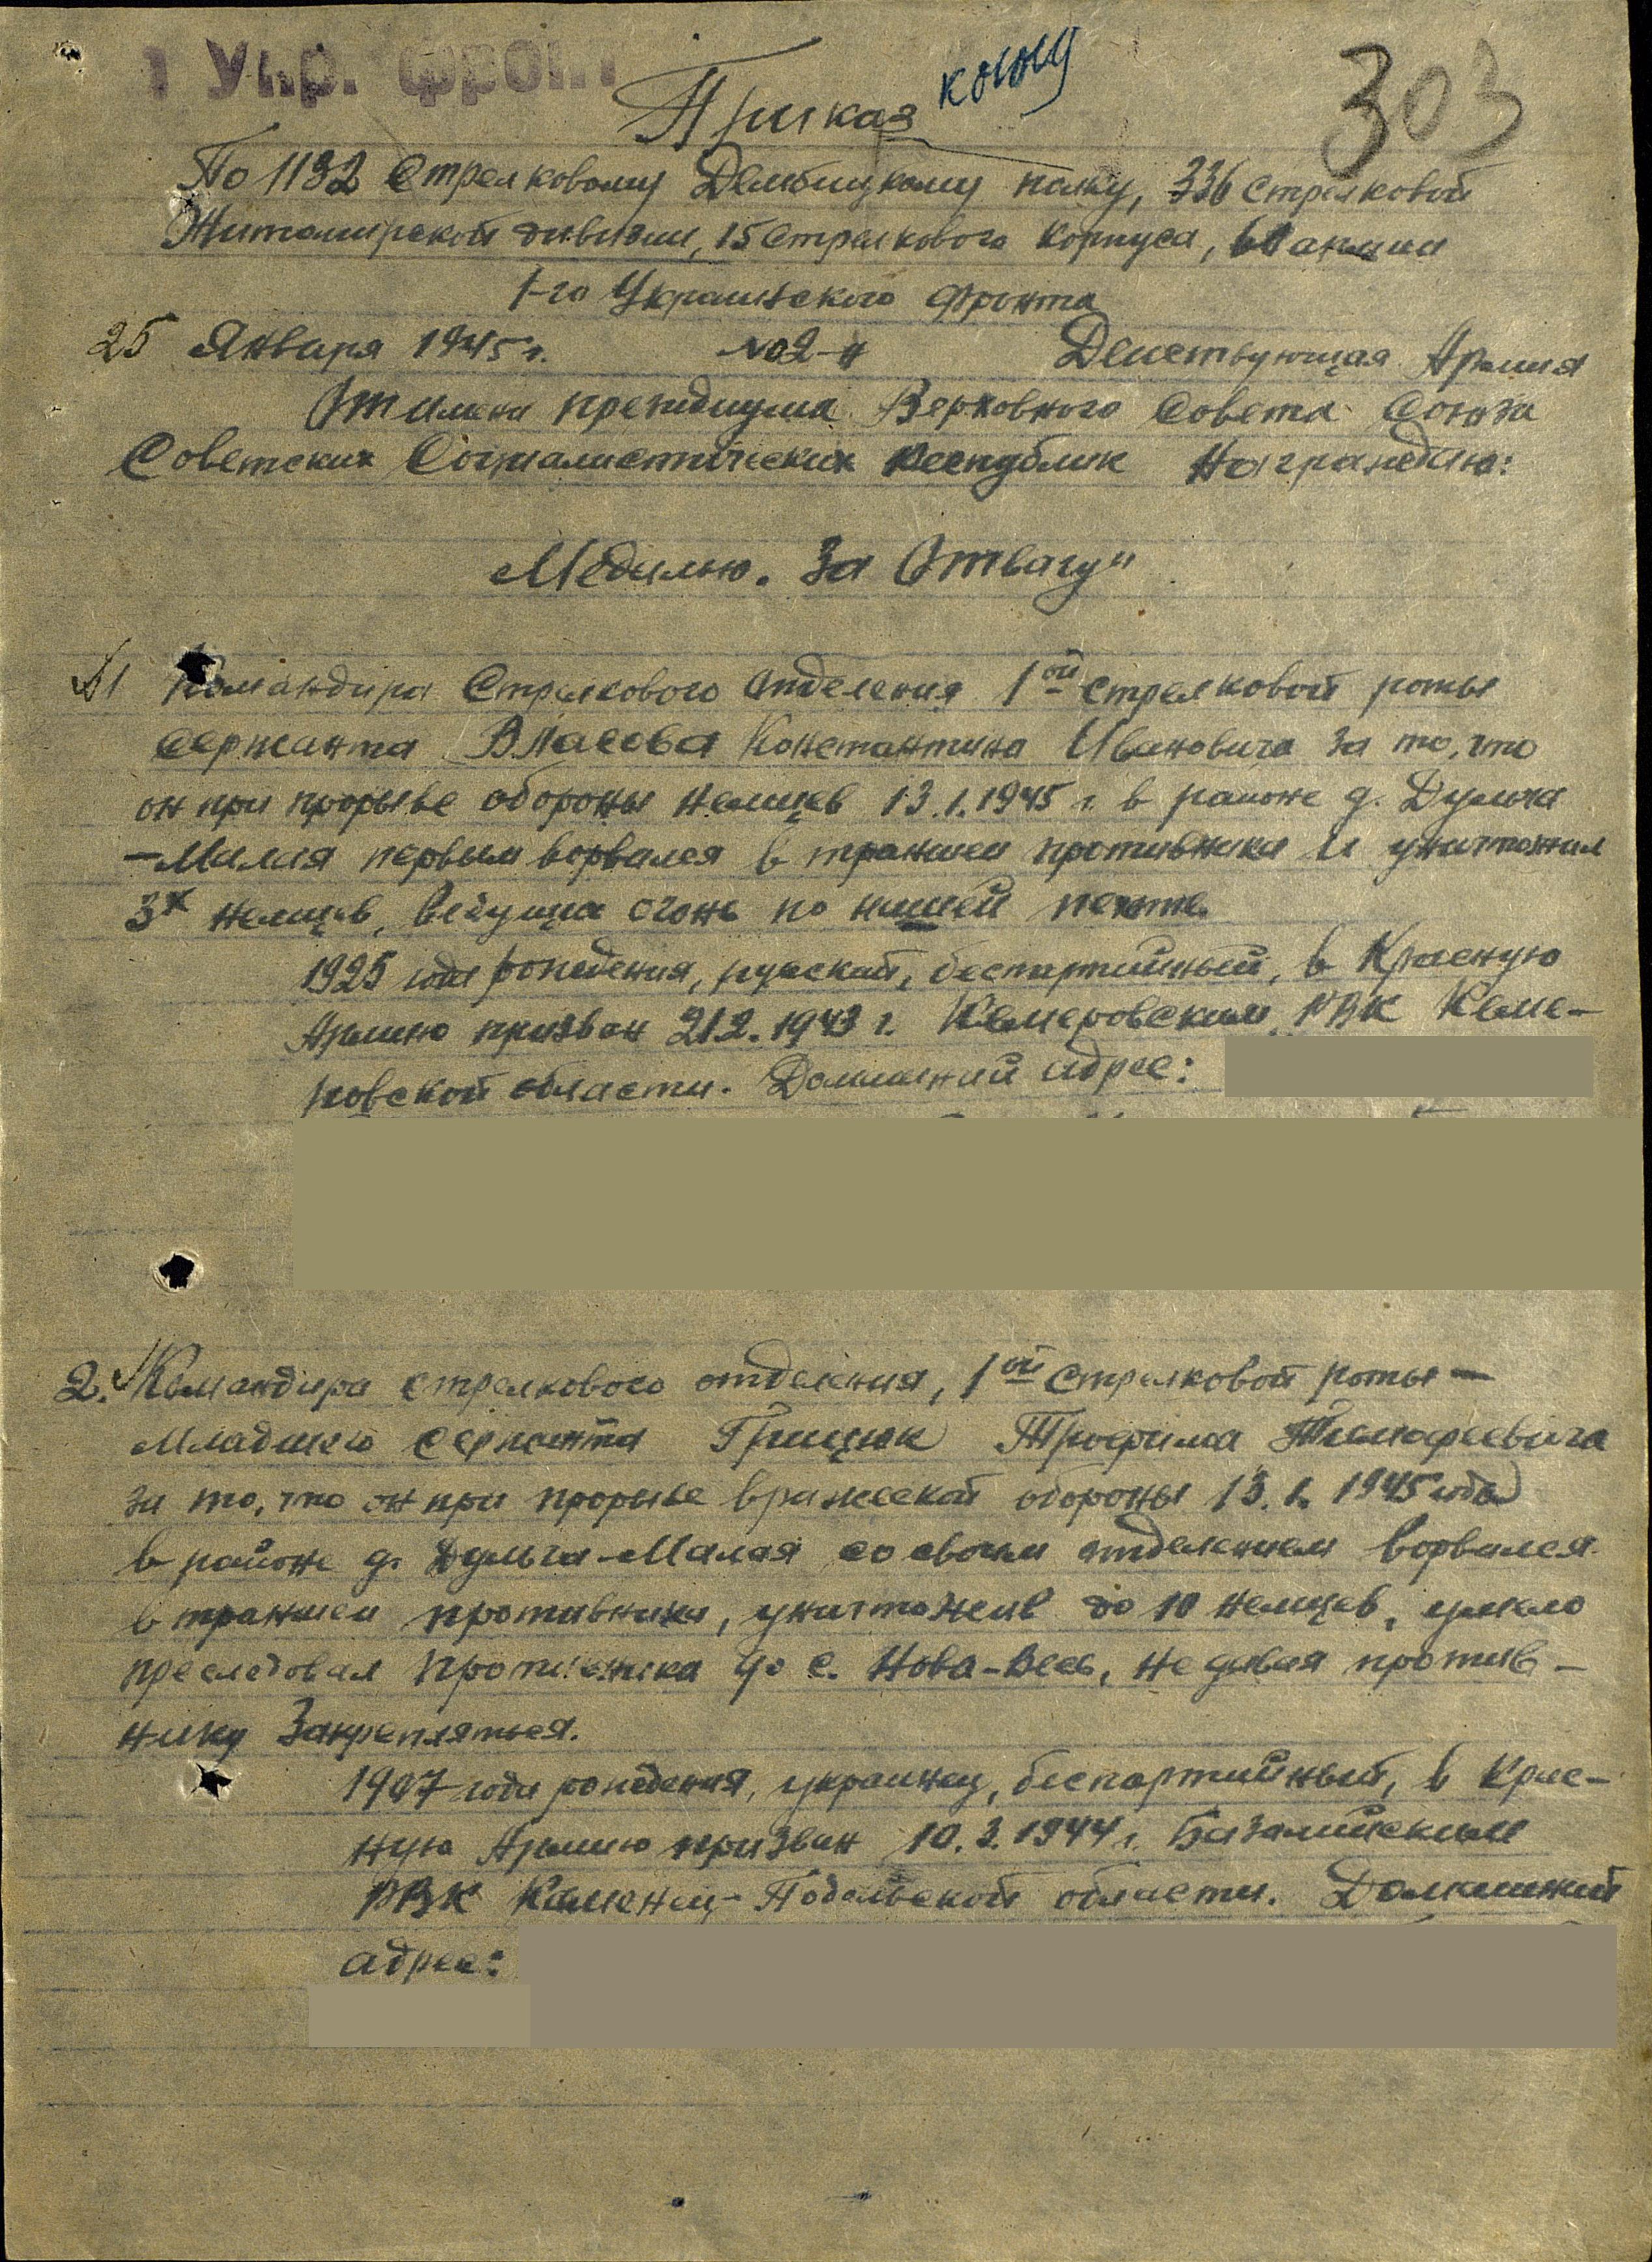 1 Укр. фронт
Приказ
копия
303
По 1132 Стрелковому Дембицкому полку, 336 Стрелковой
Житомирской дивизии, 15 Стрелкового Корпуса, 60 армии
1-го Украинского Фронта
25 Января 1945 г. №02-н Действующая Армия
От имени президиума Верховного Совета Союза
Советских Социалистических Республик Награждаю:
Медалью „За Отвагу"
1 Командира Стрелкового отделения 1ой стрелковой роты
сержанта Власова Константина Ивановича за то, что
он при прорыве обороны немцев 13.1.1945 г. в районе д. Дульча
-Малая первым ворвался в траншеи противника и уничтожил
3х немцев, ведущих огонь по нашей пехоте.
1925 года рождения, русский, беспартийный, в Красную
Армию призван 2.2.1943 г. Кемеровским РВК Кеме-
ровской области. Домашний адрес:
2. Командира стрелкового отделения, 1ой Стрелковой роты —
Младшего сержанта Грищюк Трофима Тимофеевича
за то, что он при прорыве вражеской обороны 13.1.1945 года
в районе д. Дульча-Малая со своим отделением ворвался
в траншеи противника, уничтожив до 10 немцев, умело
преследовал противника до с. Нова-Весь, не давая против-
нику Закрепляться.
1907 года рождения, украинец, беспартийный, в Крас-
ную Армию призван 10.3.1944 г. Базалийским
РВК Каменец-Подольской области. Домашний
адрес: